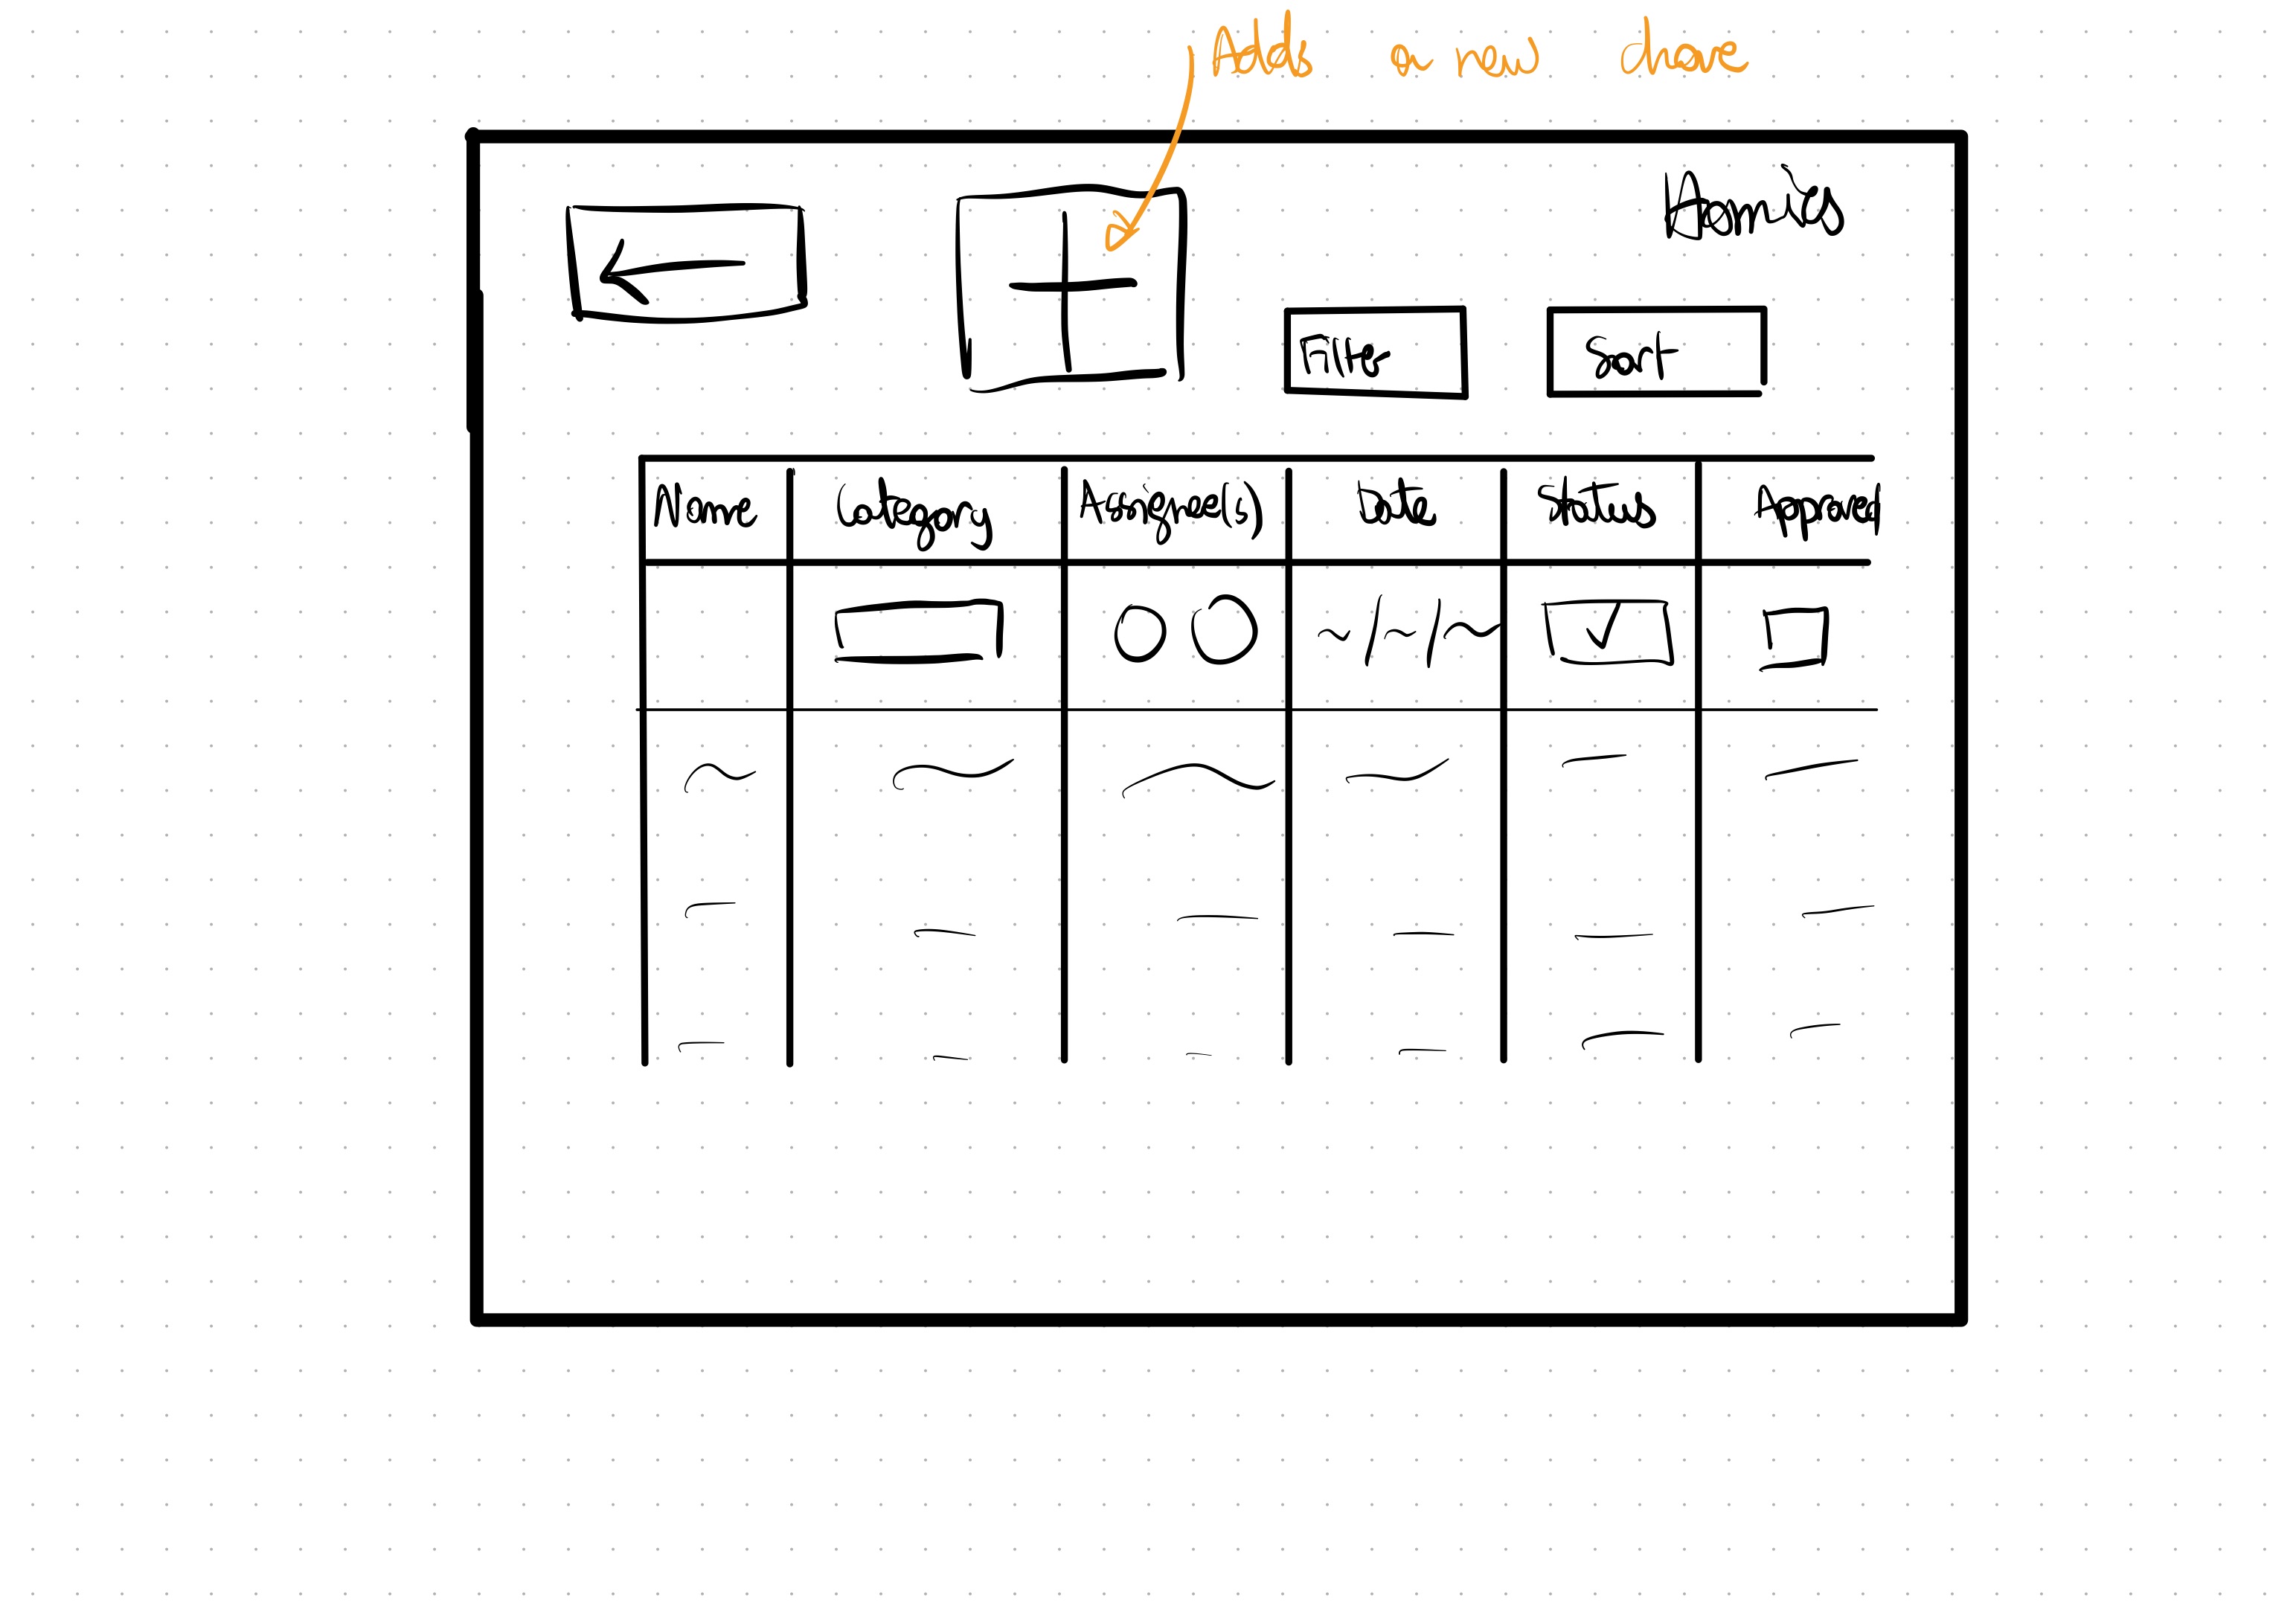 Adds a new chore
Admin's
Filter
Sort
Name Category Assignee(s) Date Status Approved